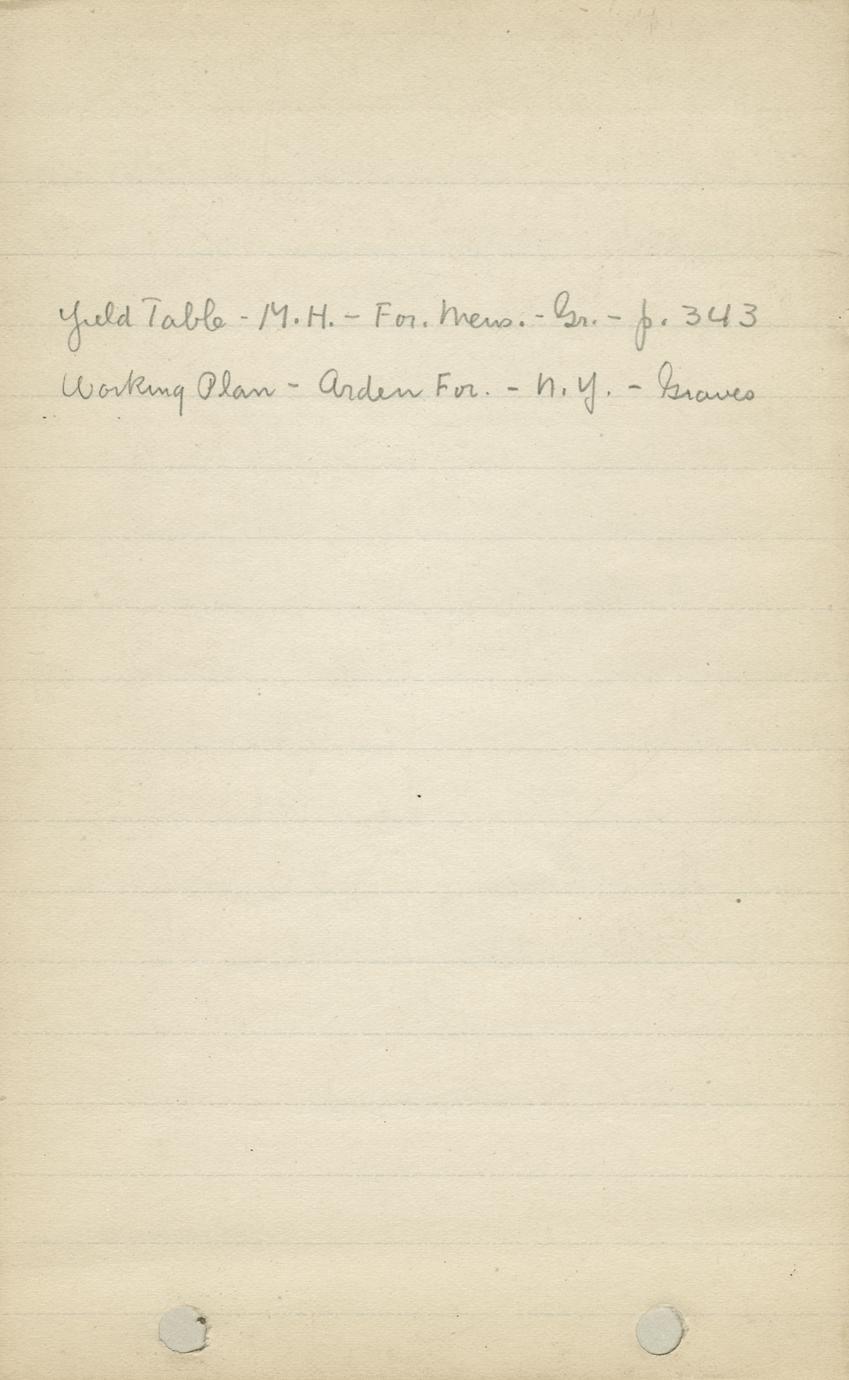 Yield Table - M.H. - For. Mens. - Gr. - p. 343
Working Plan - Arden For. - N.Y. - Graves